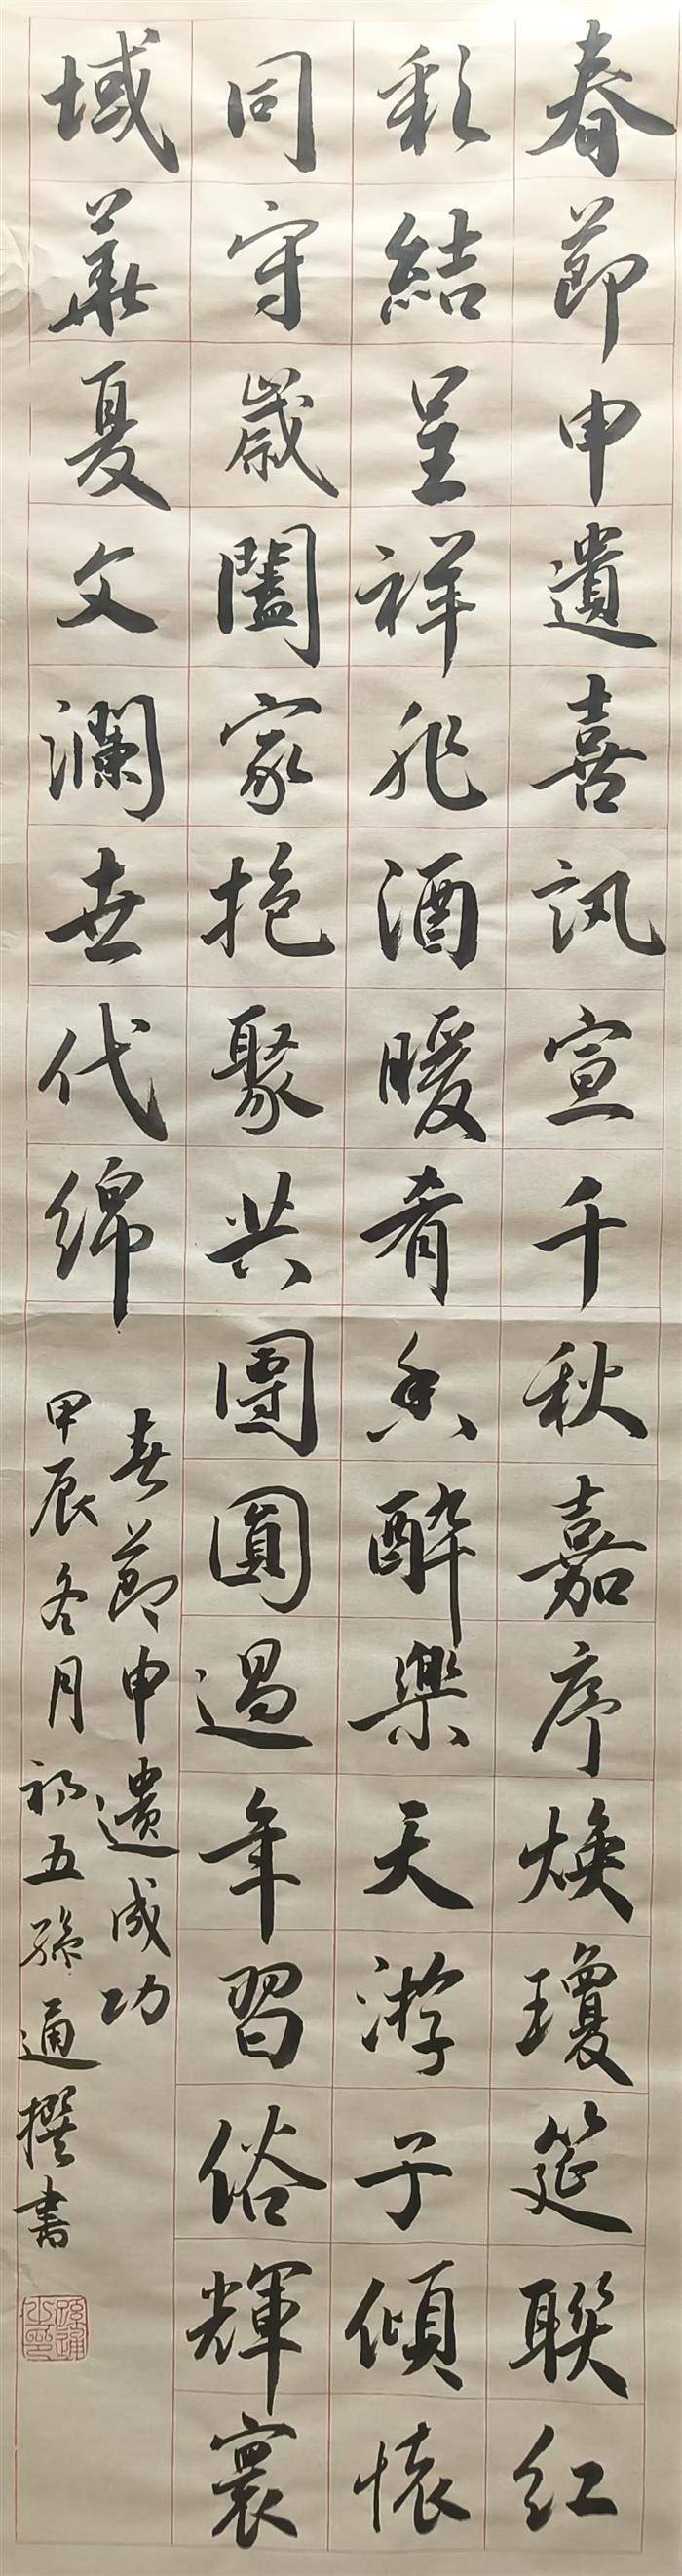 春節申遺喜訊宣千秋嘉序焕瓊筵聯紅
彩結呈祥兆酒暖肴香醉樂天游子傾懷
同守歲闔家抱聚共團圓過年習俗輝寰
域華夏文瀾世代綿
春節申遺成功
甲辰冬月初五孫通撰書
孫通之印